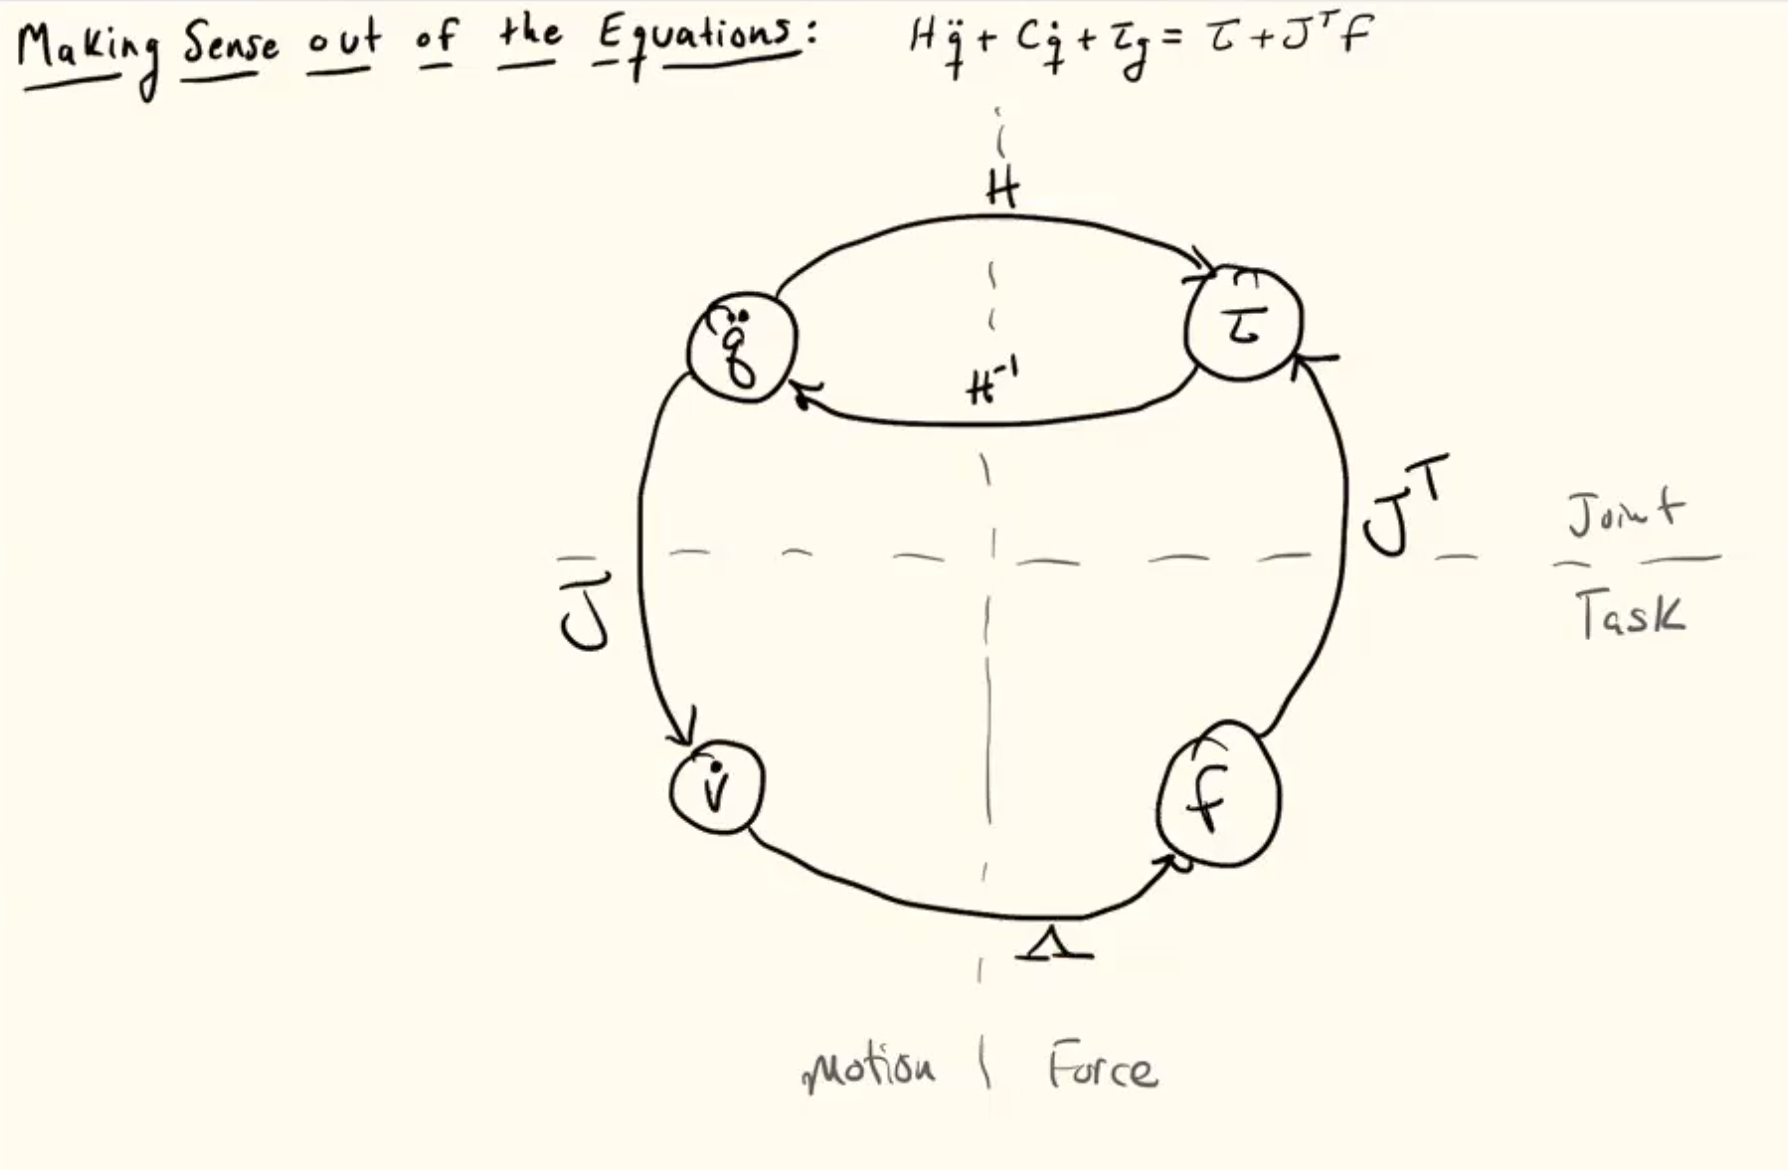 Making Sense out of the Equations: Hq̈ + Cq̇ + τg = τ + Jᵀf
H
q̈
τ
H⁻¹
Jᵀ
Joint
J
Task
v̇
f
Λ
Motion | Force